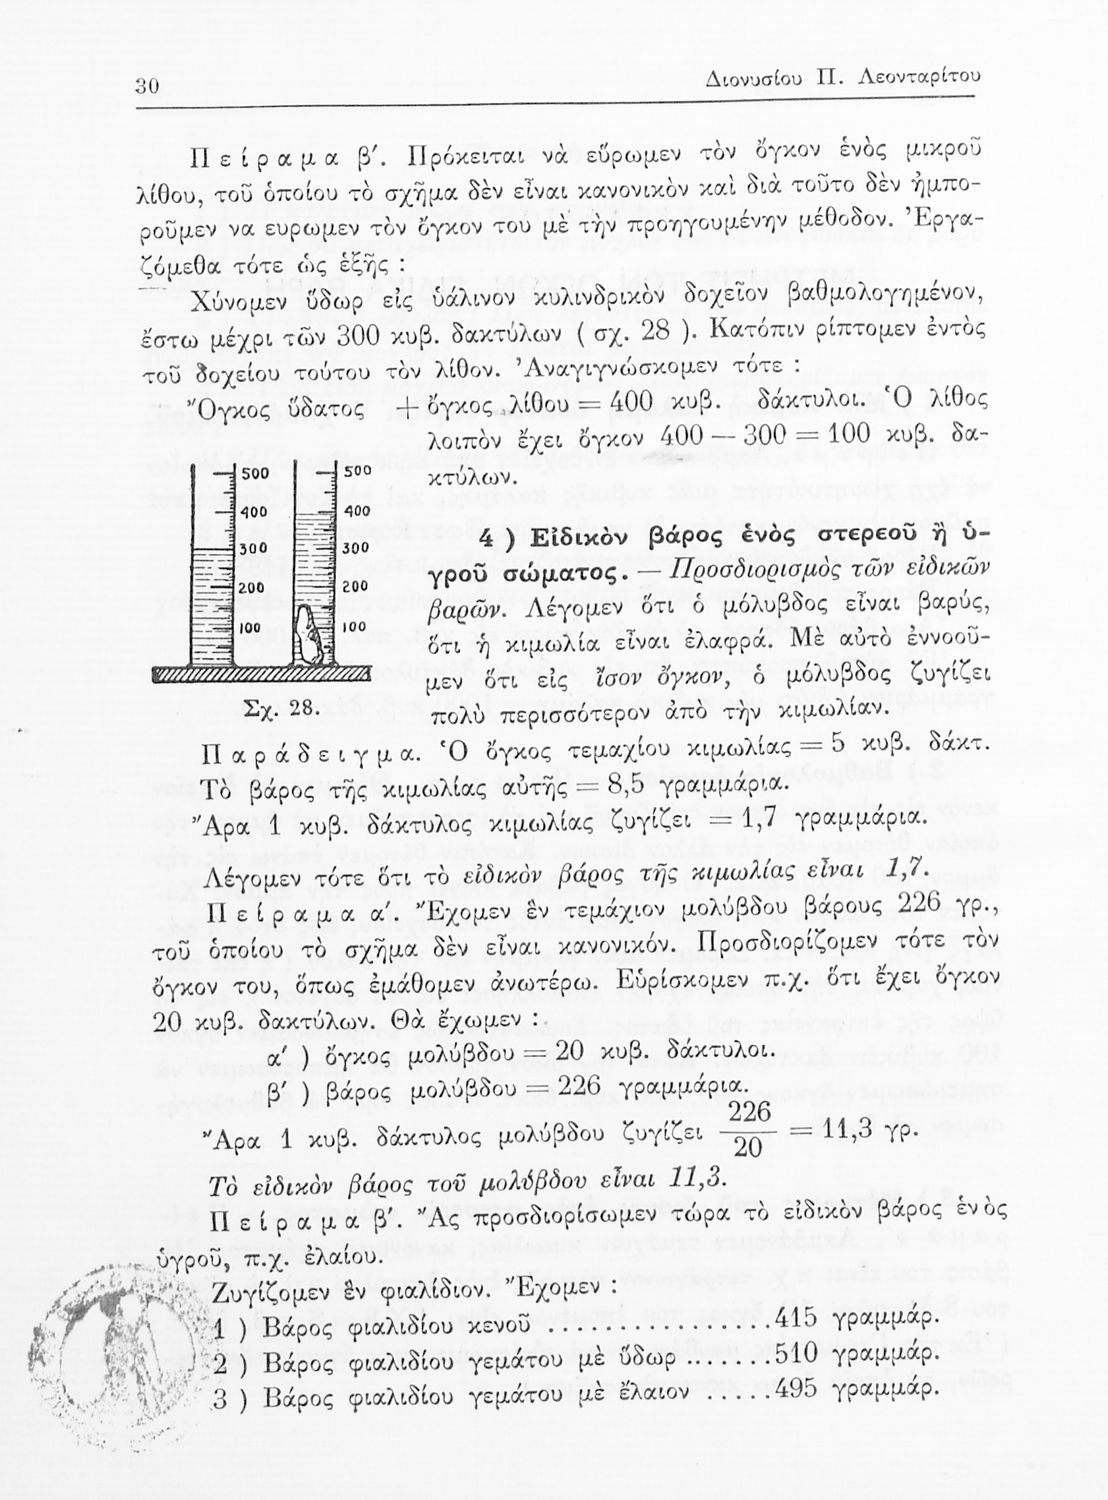 30
Διονυσίου Π. Λεονταρίτου
Πείραμα β′. Πρόκειται νὰ εὕρωμεν τὸν ὄγκον ἑνὸς μικροῦ
λίθου, τοῦ ὁποίου τὸ σχῆμα δὲν εἶναι κανονικὸν καὶ διὰ τοῦτο δὲν ἠμπο-
ροῦμεν να ευρωμεν τὸν ὄγκον του μὲ τὴν προηγουμένην μέθοδον. Ἐργα-
ζόμεθα τότε ὡς ἑξῆς :
Χύνομεν ὕδωρ εἰς ὑάλινον κυλινδρικὸν δοχεῖον βαθμολογημένον,
ἔστω μέχρι τῶν 300 κυβ. δακτύλων ( σχ. 28 ). Κατόπιν ρίπτομεν ἐντὸς
τοῦ δοχείου τούτου τὸν λίθον. Ἀναγιγνώσκομεν τότε :
Ὄγκος ὕδατος + ὄγκος λίθου = 400 κυβ. δάκτυλοι. Ὁ λίθος
λοιπὸν ἔχει ὄγκον 400 — 300 = 100 κυβ. δα-
κτύλων.
500
400
300
200
100
500
400
300
200
100
Σχ. 28.
4 ) Εἰδικὸν βάρος ἑνὸς στερεοῦ ἢ ὑ-
γροῦ σώματος. — Προσδιορισμὸς τῶν εἰδικῶν
βαρῶν. Λέγομεν ὅτι ὁ μόλυβδος εἶναι βαρύς,
ὅτι ἡ κιμωλία εἶναι ἐλαφρά. Μὲ αὐτὸ ἐννοοῦ-
μεν ὅτι εἰς ἴσον ὄγκον, ὁ μόλυβδος ζυγίζει
πολὺ περισσότερον ἀπὸ τὴν κιμωλίαν.
Παράδειγμα. Ὁ ὄγκος τεμαχίου κιμωλίας = 5 κυβ. δάκτ.
Τὸ βάρος τῆς κιμωλίας αὐτῆς = 8,5 γραμμάρια.
Ἄρα 1 κυβ. δάκτυλος κιμωλίας ζυγίζει = 1,7 γραμμάρια.
Λέγομεν τότε ὅτι τὸ εἰδικὸν βάρος τῆς κιμωλίας εἶναι 1,7.
Πείραμα α′. Ἔχομεν ἓν τεμάχιον μολύβδου βάρους 226 γρ.,
τοῦ ὁποίου τὸ σχῆμα δὲν εἶναι κανονικόν. Προσδιορίζομεν τότε τὸν
ὄγκον του, ὅπως ἐμάθομεν ἀνωτέρω. Εὑρίσκομεν π.χ. ὅτι ἔχει ὄγκον
20 κυβ. δακτύλων. Θὰ ἔχωμεν :
α′ ) ὄγκος μολύβδου = 20 κυβ. δάκτυλοι.
β′ ) βάρος μολύβδου = 226 γραμμάρια.
Ἄρα 1 κυβ. δάκτυλος μολύβδου ζυγίζει 226/20 = 11,3 γρ.
Τὸ εἰδικὸν βάρος τοῦ μολύβδου εἶναι 11,3.
Πείραμα β′. Ἂς προσδιορίσωμεν τώρα τὸ εἰδικὸν βάρος ἑνὸς
ὑγροῦ, π.χ. ἐλαίου.
Ζυγίζομεν ἓν φιαλίδιον. Ἔχομεν :
1 ) Βάρος φιαλιδίου κενοῦ ................415 γραμμάρ.
2 ) Βάρος φιαλιδίου γεμάτου μὲ ὕδωρ .......510 γραμμάρ.
3 ) Βάρος φιαλιδίου γεμάτου μὲ ἔλαιον .....495 γραμμάρ.